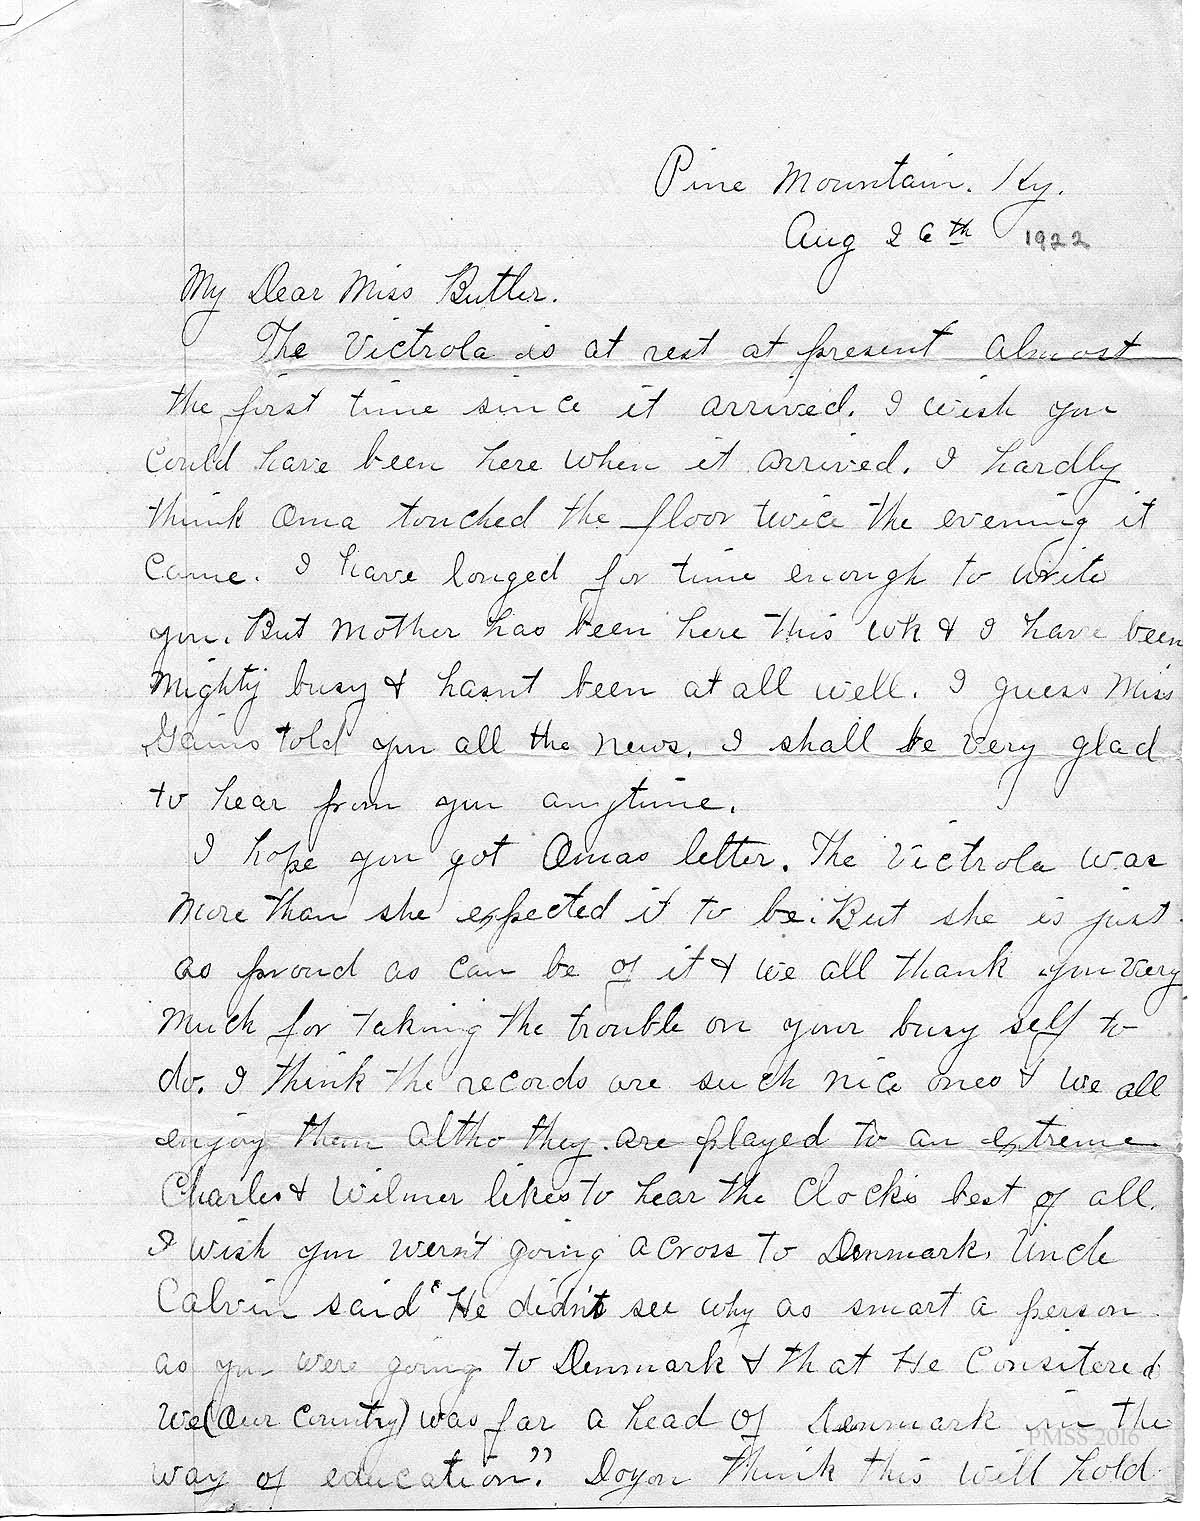 Pine Mountain. Ky.
Aug 26th 1922
My Dear Miss Butler.
The Victrola is at rest at present almost
the first time since it arrived. I wish you
could have been here when it arrived. I hardly
think Oma touched the floor twice the evening it
came. I have longed for time enough to write
you. But Mother has been here this wk & I have been
mighty busy & hasnt been at all well. I guess Miss
Gains told you all the news. I shall be very glad
to hear from you anytime.
I hope you got Omas letter. The Victrola was
more than she expected it to be. But she is just
as proud as can be of it & we all thank you very
much for taking the trouble on your busy self to
do. I think the records are such nice ones & we all
enjoy them altho they are played to an extreme
Charles & Wilmer likes to hear the Clocks best of all.
I wish you wern't going across to Denmark. Uncle
Calvin said "He didn't see why as smart a person
as you were going to Denmark & that He Consitered
We (Our Country) was far a head of Denmark in the
way of education". Doyou think this will hold
PMSS 2016